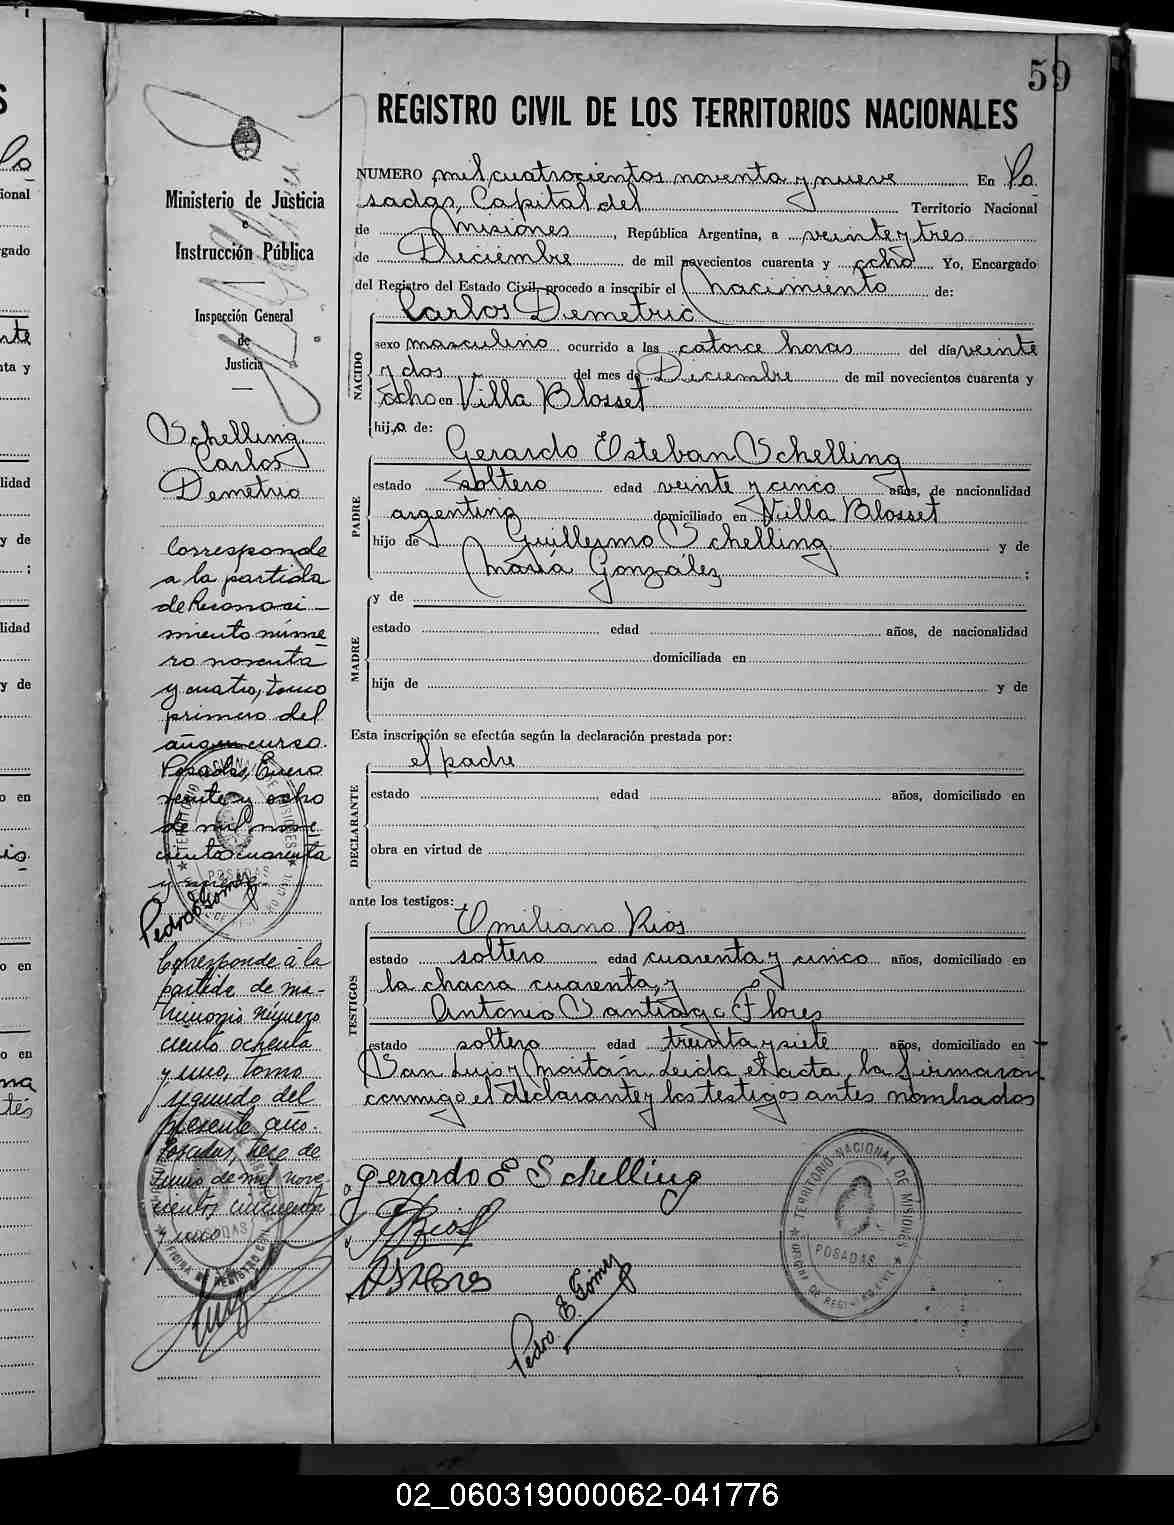 59
REGISTRO CIVIL DE LOS TERRITORIOS NACIONALES
Ministerio de Justicia
e
Instrucción Pública
Inspección General
de
Justicia
Schelling,
Carlos
Demetrio
Corresponde
a la partida
de Reconoci-
miento núme
ro noventa
y cuatro, tomo
primero del
año en curso.
Posadas, Enero
veinte y ocho
de mil nove
cientos cuarenta
y nueve.
Pedro E. Gómez
Corresponde á la
partida de ma-
trimonio número
ciento ochenta
y uno, tomo
segundo del
presente año.
Posadas, trece de
Junio de mil nove-
cientos cincuenta
y uno
NUMERO mil cuatrocientos noventa y nueve En Po
sadas, Capital del Territorio Nacional
de Misiones, República Argentina, a veinte y tres
de Diciembre de mil novecientos cuarenta y ocho Yo, Encargado
del Registro del Estado Civil, procedo a inscribir el nacimiento de:
Carlos Demetrio
NACIDO
sexo masculino ocurrido a las catorce horas del día veinte
y dos del mes de Diciembre de mil novecientos cuarenta y
ocho en Villa Blosset
hijo de:
Gerardo Esteban Schelling
PADRE
estado soltero edad veinte y cinco años, de nacionalidad
argentina domiciliado en Villa Blosset
hijo de Guillermo Schelling y de
María González;
MADRE
y de
estado edad años, de nacionalidad
domiciliada en
hija de y de
Esta inscripción se efectúa según la declaración prestada por:
el padre
DECLARANTE
estado, edad años, domiciliado en
obra en virtud de
ante los testigos:
Emiliano Rios
TESTIGOS
estado soltero edad cuarenta y cinco años, domiciliado en
la chacra cuarenta, y
Antonio Santiago Flores
estado soltero edad treinta y siete años, domiciliado en
San Luis y Moritán. Leida el acta, la firmaron
conmigo el declarante y los testigos antes nombrados
Gerardo E Schelling
E Rios
A S Flores
Pedro E. Gómez
TERRITORIO NACIONAL DE MISIONES
POSADAS
OFICINA DE REGISTRO CIVIL
02_060319000062-041776